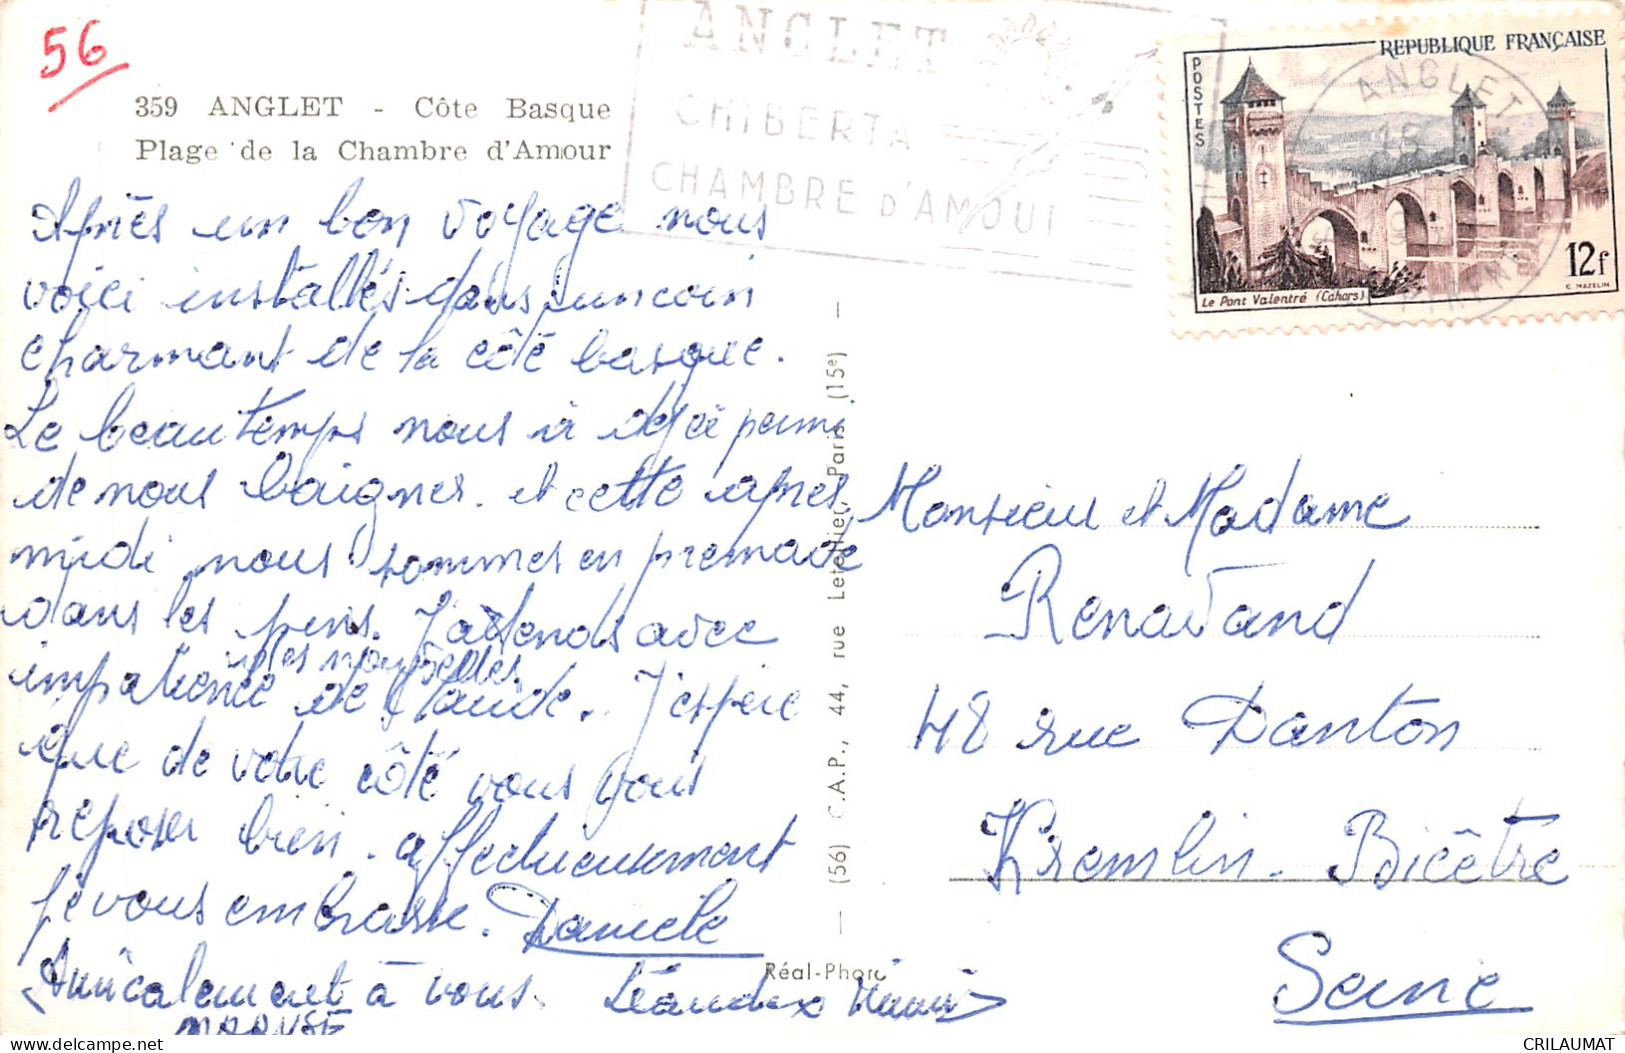 56
359 ANGLET - Côte Basque
Plage de la Chambre d'Amour
ANGLET
CHIBERTA
CHAMBRE D'AMOUR
REPUBLIQUE FRANÇAISE
POSTES
ANGLET
12f
Le Pont Valentré (Cahors)
C. MAZELIN
Après un bon voyage nous
voici installés dans un coin
charmant de la côte basque.
Le beau temps nous a déjà permis
de nous baigner. et cette après
midi nous sommes en promenade
dans les pins. J'attends avec
impatience des nouvelles
de Claude. J'espère
que de votre côté vous vous
reposer bien. affectueusement
je vous embrasse. Danièle
Amicalement à vous.
MARYSE
(56) C.A.P., 44, rue Letellier, Paris (15e)
Réal-Photo
Monsieur et Madame
Renavand
48 rue Danton
Kremlin-Bicêtre
Seine
CRILAUMAT